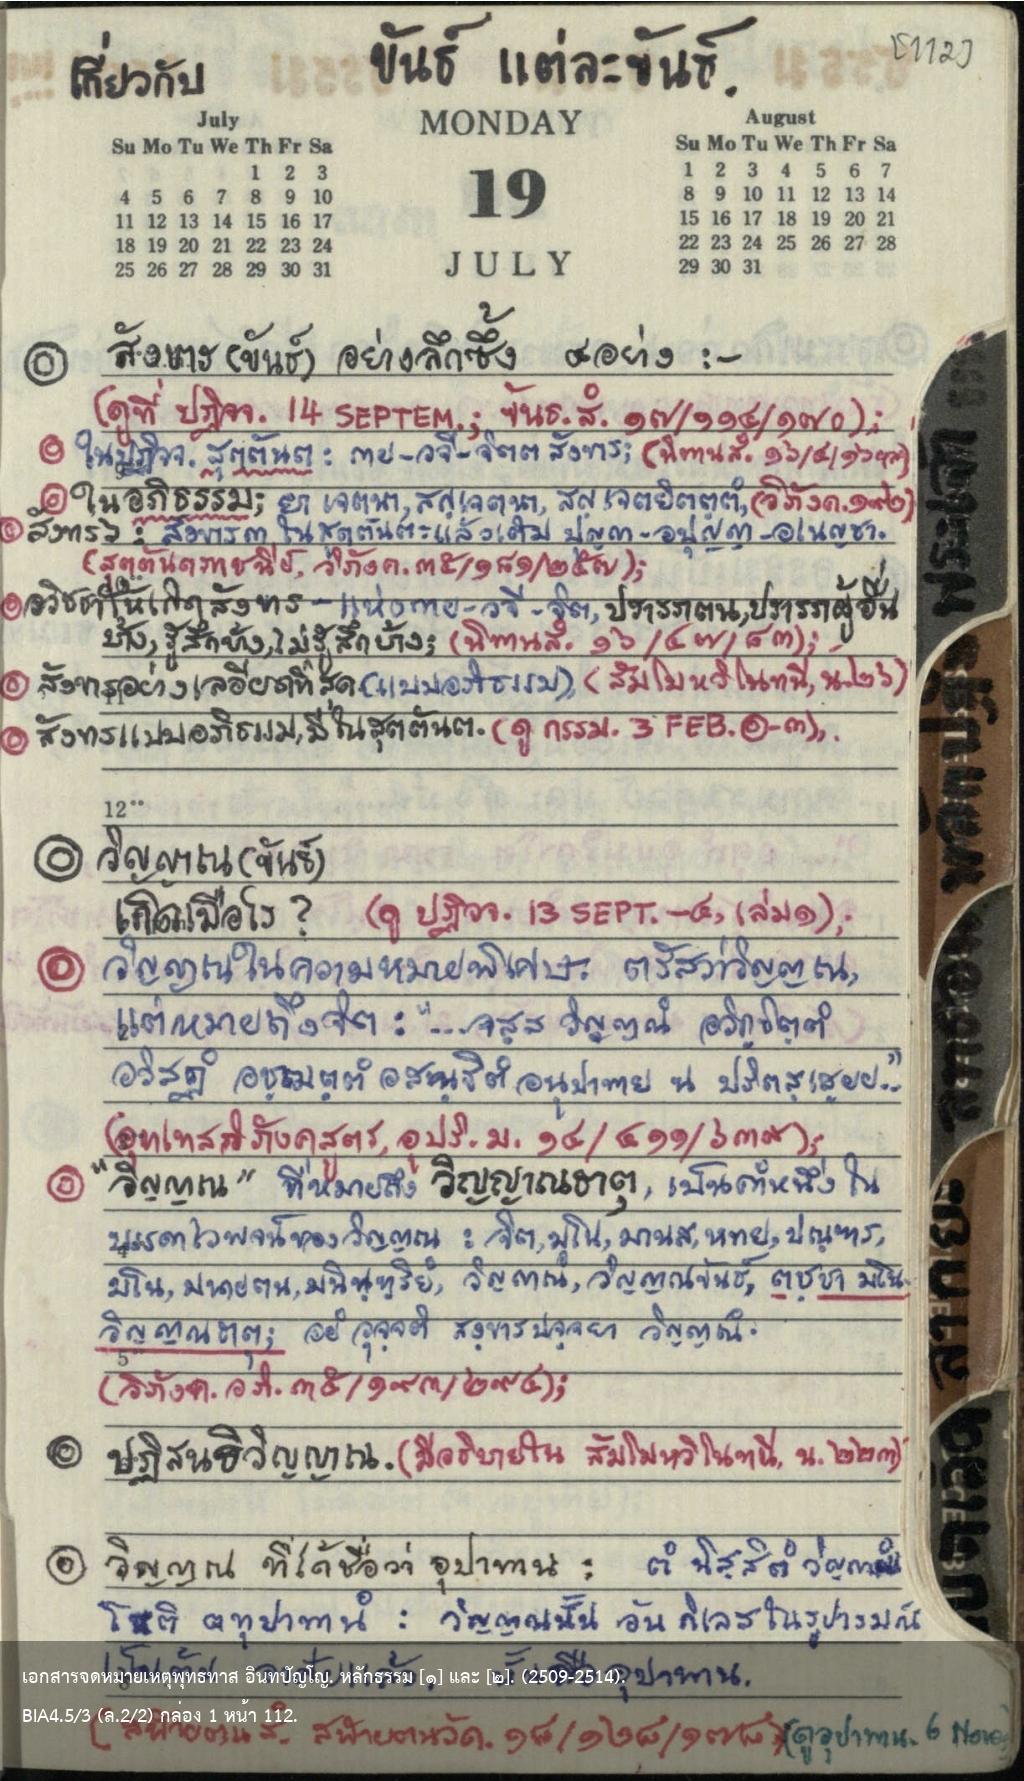 [112]
เกี่ยวกับ ขันธ์ แต่ละขันธ์.
July
Su Mo Tu We Th Fr Sa
1 2 3
4 5 6 7 8 9 10
11 12 13 14 15 16 17
18 19 20 21 22 23 24
25 26 27 28 29 30 31
MONDAY
19
JULY
August
Su Mo Tu We Th Fr Sa
1 2 3 4 5 6 7
8 9 10 11 12 13 14
15 16 17 18 19 20 21
22 23 24 25 26 27 28
29 30 31
สังขาร (ขันธ์) อย่างลึกซึ้ง ๔ อย่าง :-
(ดูที่ ปฏิจจ. 14 SEPTEM.; ขันธ. สํ. ๑๗/๑๑๔/๑๗๐);
ในปฏิจจ. สุตตันต : กาย-วจี-จิตต สังขาร; (นิทานสํ. ๑๖/๔/๑๖)
ในอภิธรรม; ยา เจตนา, สญฺเจตนา, สญฺเจตยิตตฺตํ, (วิภังค.๑๙๒)
สังขาร ๖ : สังขาร ๓ ในสุตตันตะแล้วเติม ปุญญา-อปุญญา-อเนญชา.
(สุตตันตภาชนีย์, วิภังค. ๓๕/๑๘๑/๒๕๗);
อวิชชาให้เกิดสังขาร - แห่งกาย-วจี-จิต, ปรารภตน, ปรารภผู้อื่น
บ้าง, รู้สึกบ้าง, ไม่รู้สึกบ้าง; (นิทานสํ. ๑๖/๔๗/๘๓);
สังขารอย่างละเอียดที่สุด (แบบอภิธรรม), (สัมโมหวิโนทนี, น.๒๖)
สังขารแบบอภิธรรม, มีในสุตตันต. (ดู กรรม. 3 FEB. ๑-๓),.
12
วิญญาณ (ขันธ์)
เกิดเมื่อไร ? (ดู ปฏิจจ. 13 SEPT. -๔, เล่ม๑);
วิญญาณในความหมายพิเศษ: ตรัสว่าวิญญาณ,
แต่หมายถึงจิต : "... จสฺส วิญฺญาณํ อวิกฺขิตฺตํ
อวิสฏํ อชฺฌตฺตํ อสณฺฐิตํ อนุปาทาย น ปริตสฺเสยฺย.."
(อุทเทสวิภังคสูตร, อุปริ. ม. ๑๔/๔๑๑/๖๓๙);
"วิญญาณ" ที่หมายถึง วิญญาณธาตุ, เป็นคำหนึ่ง ใน
บรรดาไวพจน์ของวิญญาณ : จิต, มโน, มานส, หทย, ปณฺฑร,
มโน, มนายตน, มนินฺทฺริยํ, วิญฺญาณํ, วิญฺญาณขันธ์, ตชฺชา มโน-
วิญฺญาณธาตุ; อยํ วุจฺจติ สงฺขารปจฺจยา วิญฺญาณํ.
5
(วิภังค. อภิ. ๓๕/๑๙๓/๒๙๔);
ปฏิสนธิวิญญาณ. (มีอธิบายใน สัมโมหวิโนทนี, น. ๒๒๓)
วิญญาณ ที่ได้ชื่อว่า อุปาทาน : ตํ นิสฺสิตํ วิญฺญาณํ
โหติ ตทุปาทานํ : วิญญาณนั้น อัน กิเลส ในรูปารมณ์
นั้นคืออุปาทาน.
(สฬายตน สํ. สฬายตนวัค. ๑๘/๑๒๘/๑๗๘) (ดูอุปาทาน. 6 Nov.)
เอกสารจดหมายเหตุพุทธทาส อินทปัญโญ. หลักธรรม [๑] และ [๒]. (2509-2514).
BIA4.5/3 (ล.2/2) กล่อง 1 หน้า 112.